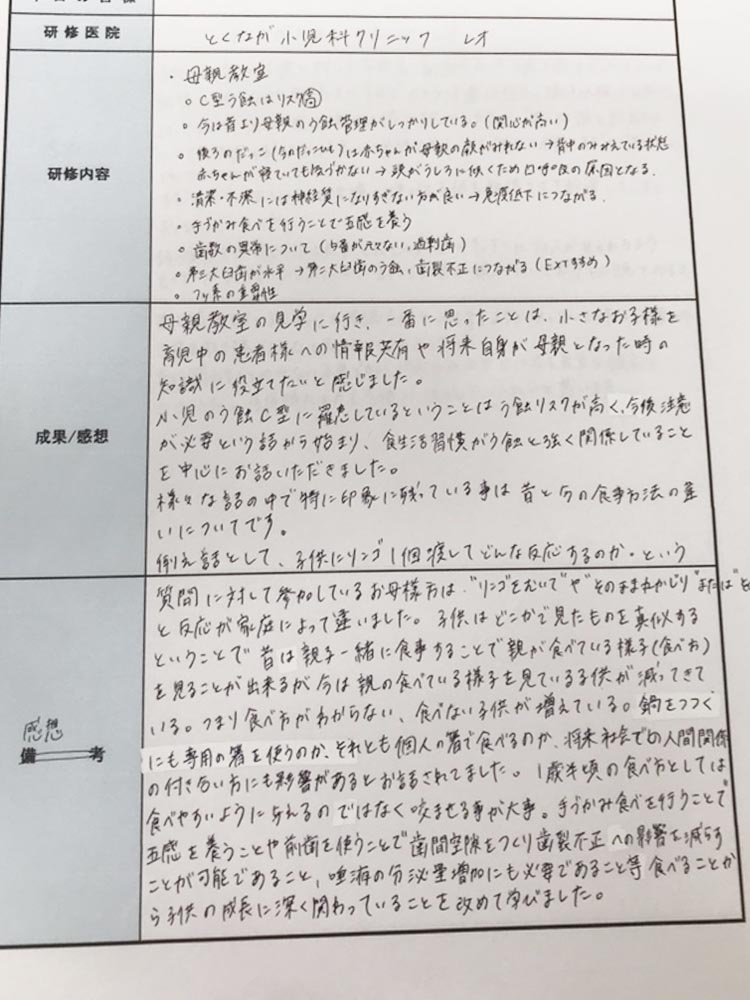 研修医院
とくなが小児科クリニック レオ
研修内容
・母親教室
○C型う蝕はリスク高
○今は昔より母親のう蝕管理がしっかりしている。(関心が高い)
○後ろのだっこ(今のだっこひも)は赤ちゃんが母親の顔がみれない→背中のみみえている状態
赤ちゃんが寝ていても気づかない→頭がうしろに傾くため口呼吸の原因となる。
○清潔・不潔には神経質になりすぎない方が良い→免疫低下につながる。
○手づかみ食べを行うことで五感を養う
○歯数の異常について(5番が元々ない、過剰歯)
○第三大臼歯が水平→第二大臼歯のう蝕、歯裂不正につながる(Extすすめ)
○フッ素の重要性
成果/感想
母親教室の見学に行き、一番に思ったことは、小さなお子様を
育児中の患者様への情報共有や将来自身が母親となった時の
知識に役立てたいと感じました。
小児のう蝕C型に罹患しているということはう蝕リスクが高く、今後注意
が必要という話から始まり、食生活習慣がう蝕と強く関係していること
を中心にお話いただきました。
様々な話の中で特に印象に残っている事は昔と今の食事方法の違
いについてです。
例え話として、子供にリンゴ1個渡してどんな反応するのか・という
感想
備考
質問に対して参加しているお母様方は、"リンゴをむいて"や"そのまままるかじり"または"
と反応が家庭によって違いました。子供はどこかで見たものを真似する
ということで昔は親子一緒に食事することで親が食べている様子(食べ方)
を見ることが出来るが今は親の食べている様子を見ている子供が減ってきて
いる。つまり食べ方がわからない、食べない子供が増えている。鍋をつつく
にも専用の箸を使うのか、それとも個人の箸で食べるのか、将来社会での人間関係
の付き合い方にも影響があるとお話されてました。1歳半頃の食べ方としては
食べやすいように与えるのではなく咬ませる事が大事。手づかみ食べを行うことで
五感を養うことや前歯を使うことで歯間空隙をつくり歯裂不正への影響を減らす
ことが可能であること、唾液の分泌量増加にも必要であること等食べることか
ら子供の成長に深く関わっていることを改めて学びました。